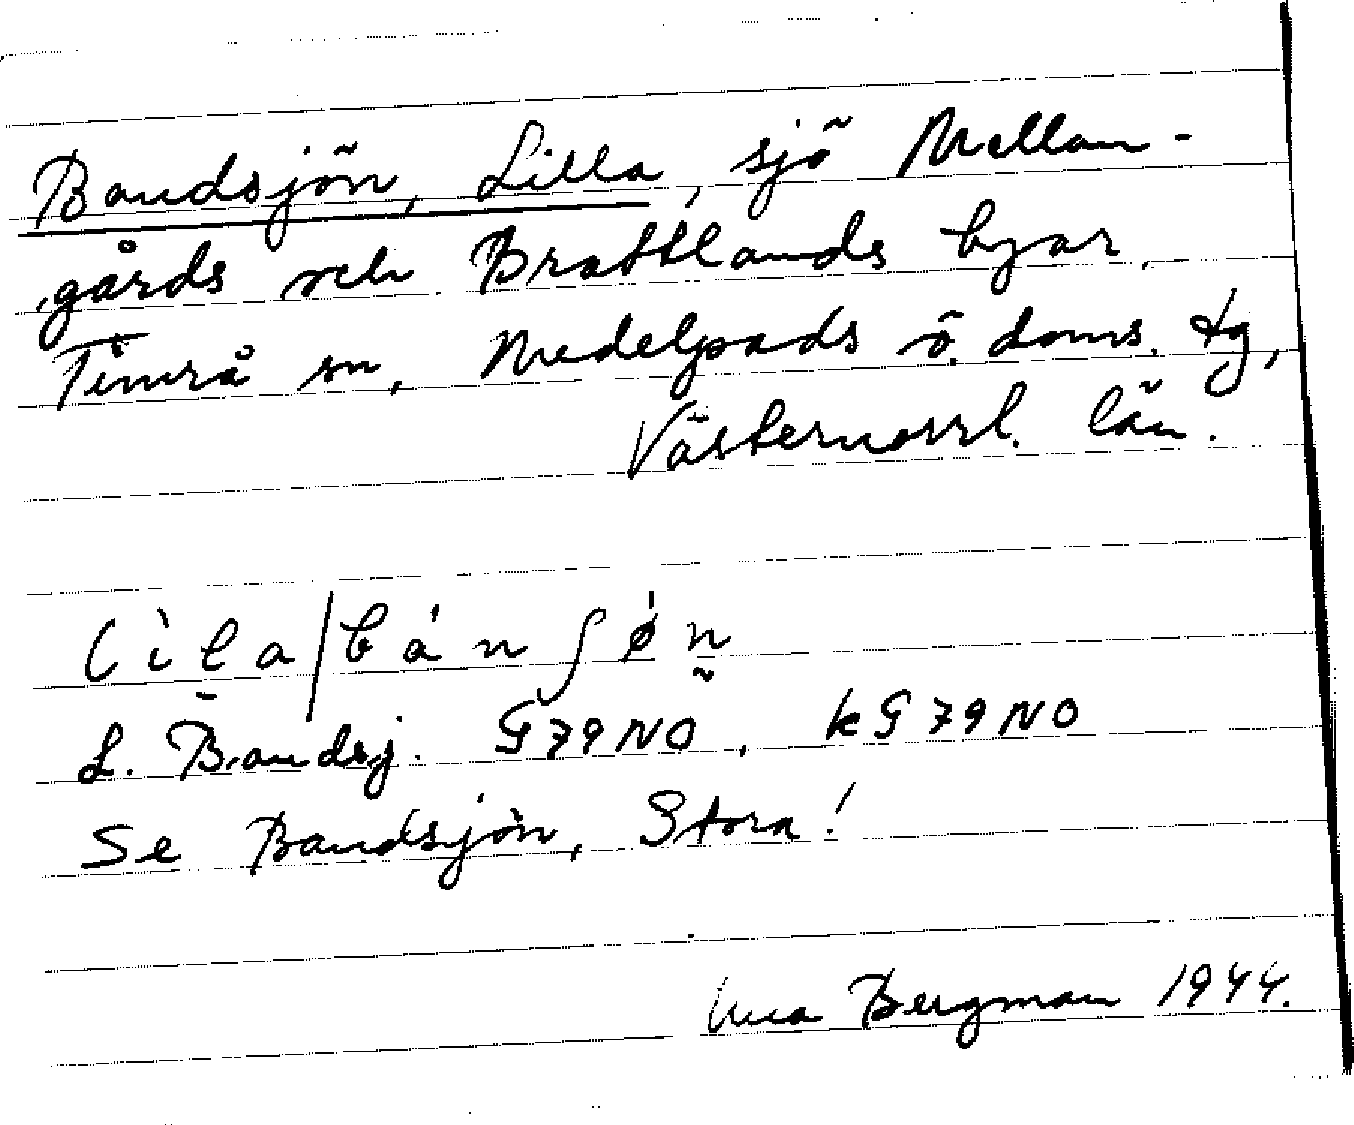 Bandsjön, Lilla, sjö Mellan-
gårds och Brattlands byar,
Timrå sn, Medelpads ö. doms. tg,
Västernorrl. län.
lìla/bánʃøn
L. Bandsj. G79NO, kG79NO
Se Bandsjön, Stora!
Bergman 1944.